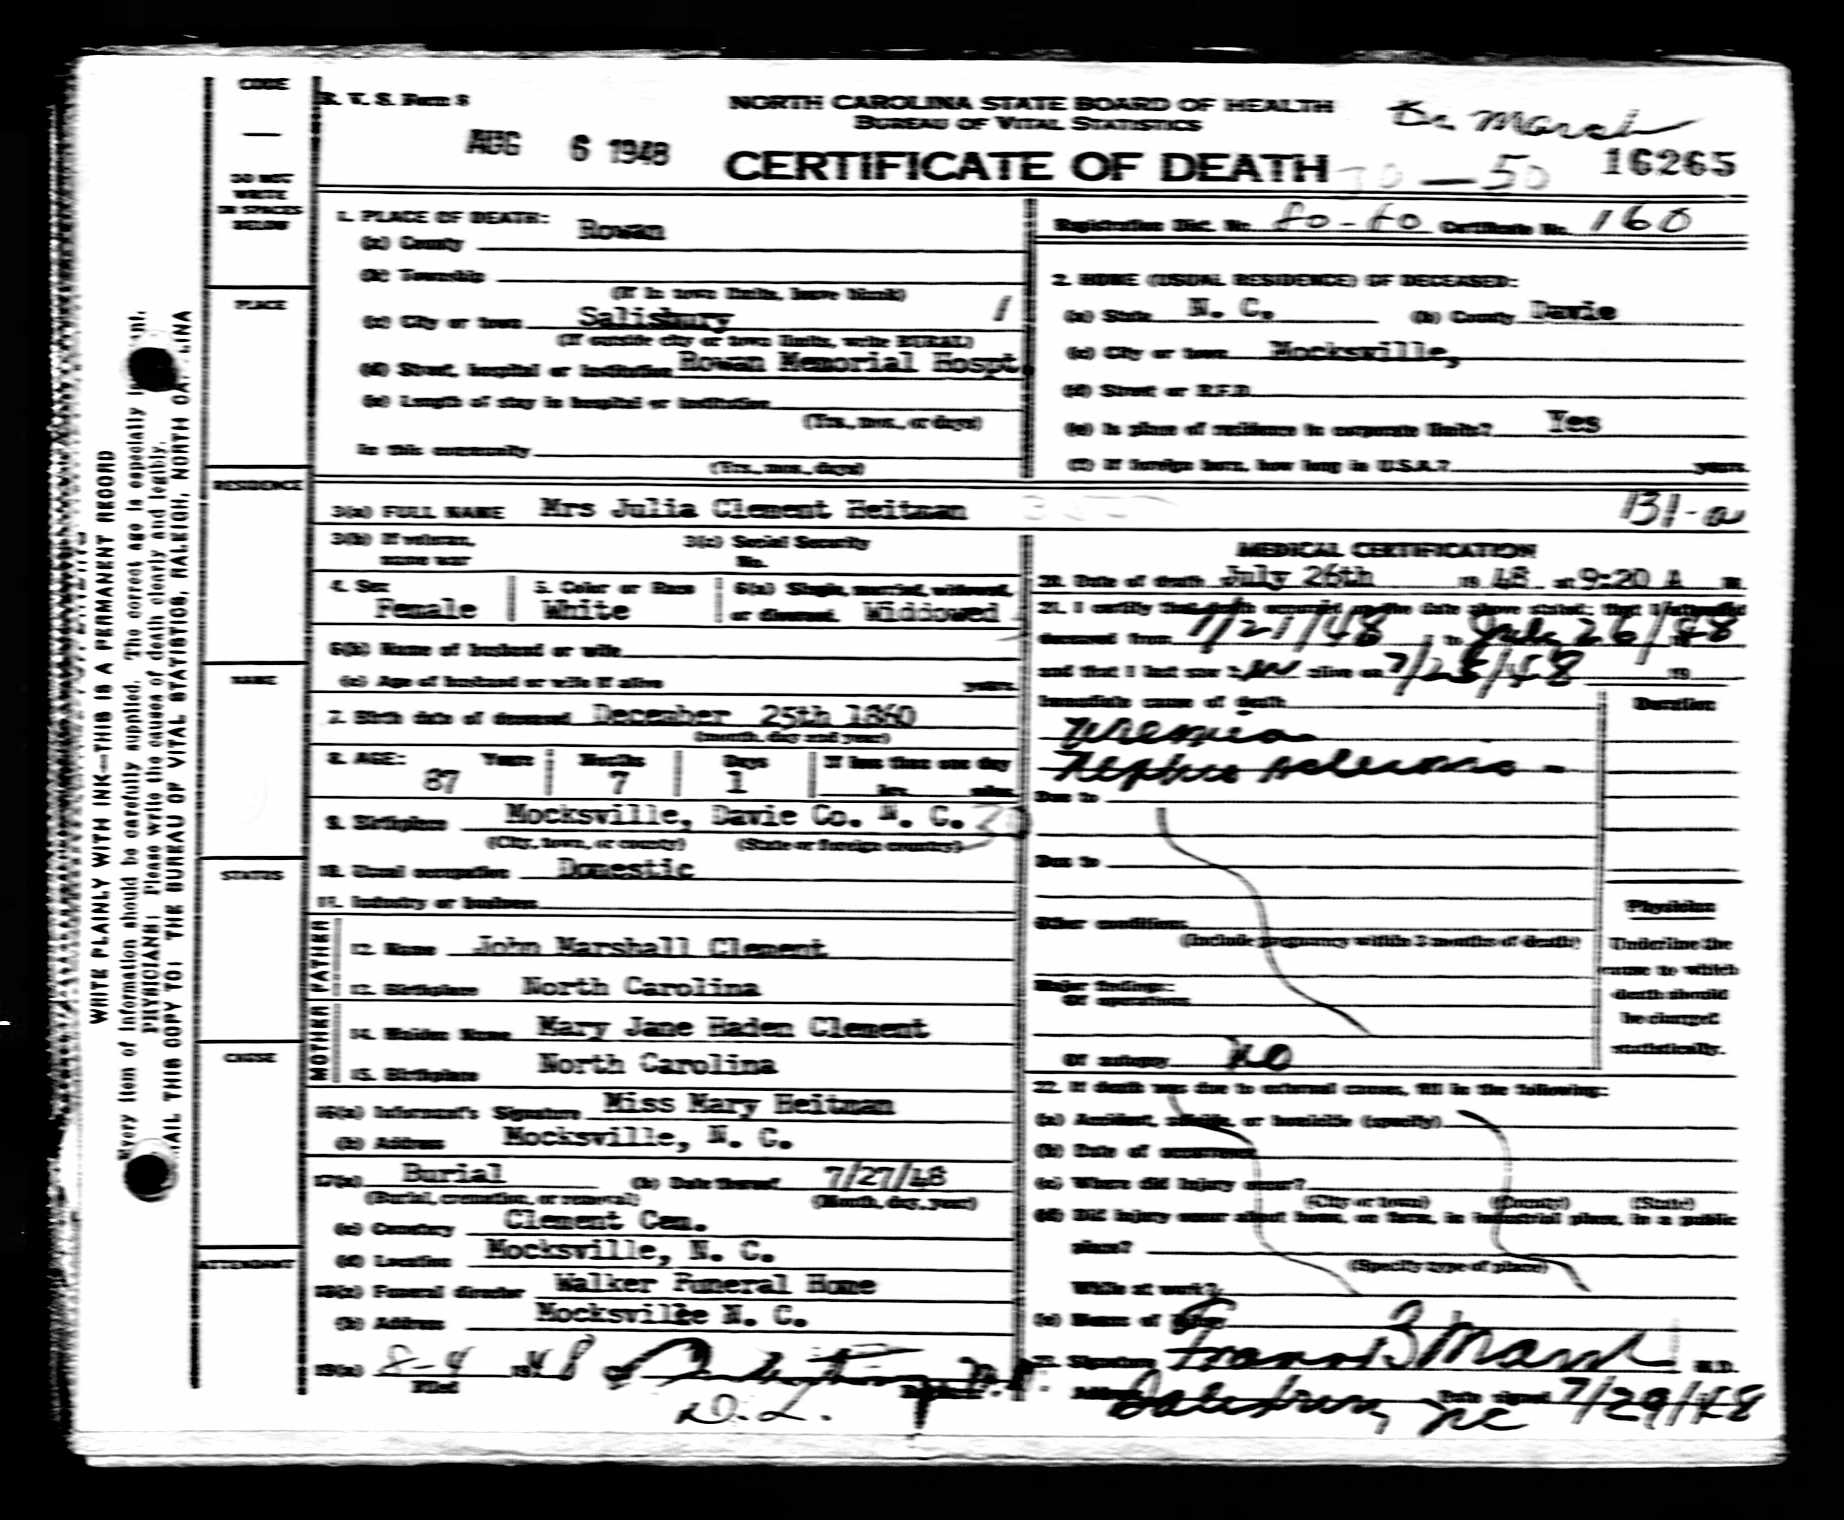 CODE
—
DO NOT
WRITE
IN SPACES
BELOW
PLACE
RESIDENCE
NAME
STATUS
CAUSE
ATTENDANT
WRITE PLAINLY WITH INK—THIS IS A PERMANENT RECORD
Every item of information should be carefully supplied. The correct age is especially
PHYSICIANS: Please write the causes of death clearly and legibly.
MAIL THIS COPY TO: THE BUREAU OF VITAL STATISTICS, RALEIGH, NORTH CAROLINA
B. V. S. Form 8
NORTH CAROLINA STATE BOARD OF HEALTH
Dr Marsh
BUREAU OF VITAL STATISTICS
AUG 6 1948
CERTIFICATE OF DEATH
— 50
16265
1. PLACE OF DEATH:
(a) County Rowan
(b) Township
(If in town limits, leave blank)
(c) City or town Salisbury 1
(If outside city or town limits, write RURAL)
(d) Street, hospital or institution Rowan Memorial Hospt.
(e) Length of stay in hospital or institution
(Yrs., mos., or days)
In this community
(Yrs., mos., days)
Registration Dist. No. 80-60 Certificate No. 160
2. HOME (USUAL RESIDENCE) OF DECEASED:
(a) State N. C. (b) County Davie
(c) City or town Mocksville,
(d) Street or R.F.D.
(e) Is place of residence in corporate limits? Yes
(f) If foreign born, how long in U.S.A.? years
3(a) FULL NAME Mrs Julia Clement Heitman
131-a
3(b) If veteran, name war
3(c) Social Security No.
4. Sex Female
5. Color or Race White
6(a) Single, married, widowed, or divorced. Widdowed
6(b) Name of husband or wife
(c) Age of husband or wife if alive years
7. Birth date of deceased December 25th 1860
(month, day and year)
8. AGE: Years Months Days If less than one day
87 7 1 hrs. mins.
9. Birthplace Mocksville, Davie Co. N. C.
(City, town, or county) (State or foreign country)
10. Usual occupation Domestic
11. Industry or business
FATHER
12. Name John Marshall Clement
13. Birthplace North Carolina
MOTHER
14. Maiden Name Mary Jane Haden Clement
15. Birthplace North Carolina
16(a) Informant's Signature Miss Mary Heitman
(b) Address Mocksville, N. C.
17(a) Burial (b) Date thereof 7/27/48
(Burial, cremation, or removal) (Month, day, year)
(c) Cemetery Clement Cem.
(d) Location Mocksville, N. C.
18(a) Funeral director Walker Funeral Home
(b) Address Mocksville N. C.
19(a) 8-4 1948
Filed
D.L.
MEDICAL CERTIFICATION
20. Date of death July 26th 19 48 at 9:20 A m.
21. I certify that death occurred on the date above stated; that I attended
deceased from 7/21/48 to July 26/48
and that I last saw her alive on 7/25/48 19
Immediate cause of death
Duration
Uremia
Nephro sclerosis -
Due to
Due to
Other conditions
(Include pregnancy within 3 months of death)
Major findings:
Of operations
Of autopsy no
Physician
Underline the
cause to which
death should
be charged
statistically.
22. If death was due to external causes, fill in the following:
(a) Accident, suicide, or homicide (specify)
(b) Date of occurrence
(c) Where did injury occur?
(City or town) (County) (State)
(d) Did injury occur about home, on farm, in industrial place, in a public
place?
(Specify type of place)
While at work?
(e) Means of injury
23. Signature Francis B Marsh M.D.
Address Salisbury, NC Date signed 7/29/48